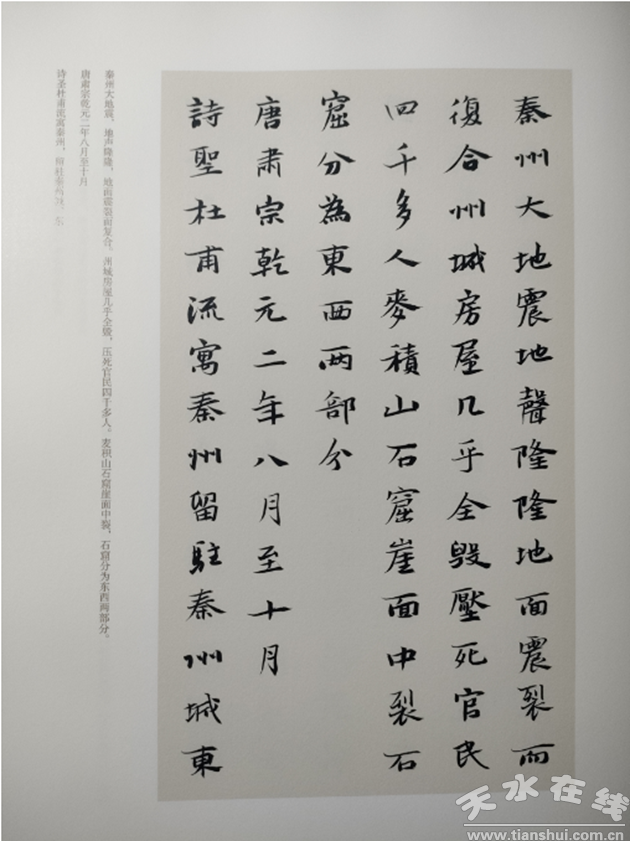 秦州大地震地聲隆隆地面震裂而
復合州城房屋几乎全毁壓死官民
四千多人麥積山石窟崖面中裂石
窟分為東西两部分
唐肅宗乾元二年八月至十月
詩聖杜甫流寓秦州留駐秦州城東
秦州大地震，地声隆隆，地面震裂而复合，州城房屋几乎全毁，压死官民四千多人。麦积山石窟崖面中裂，石窟分为东西两部分。
唐肃宗乾元二年八月至十月
诗圣杜甫流寓秦州，东
天水在线
www.tianshui.com.cn